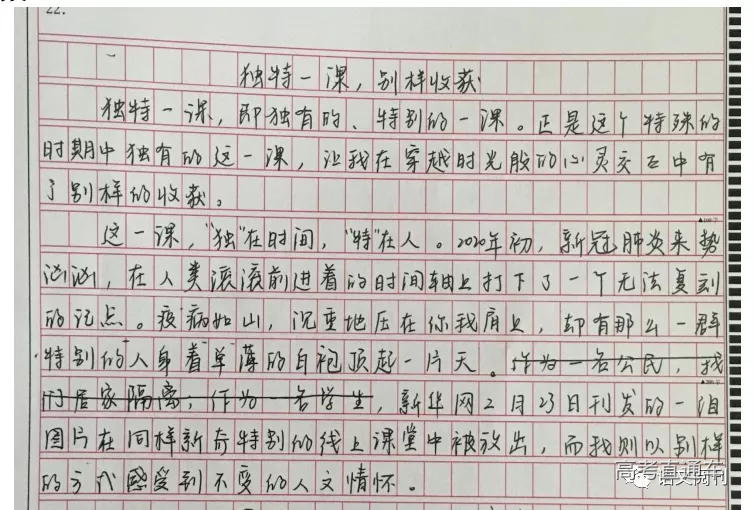 22.
独特一课，别样收获
独特一课，即独有的、特别的一课。正是这个特殊的
时期中独有的这一课，让我在穿越时光般的心灵交互中有
了别样的收获。
▲100字
这一课，"独"在时间，"特"在人。2020年初，新冠肺炎来势
汹汹，在人类滚滚前进着的时间轴上打下了一个无法复刻
的记点。疫病如山，沉重地压在你我肩上，却有那么一群
"特别的"人身着"单"薄的白袍顶起一片天。作为一名公民，我
▲200字
们居家隔离；作为一名学生，新华网2月23日刊发的一组
图片在同样新奇特别的线上课堂中被放出，而我则以别样
的方式感受到不变的人文情怀。
高考直通车
语文周刊